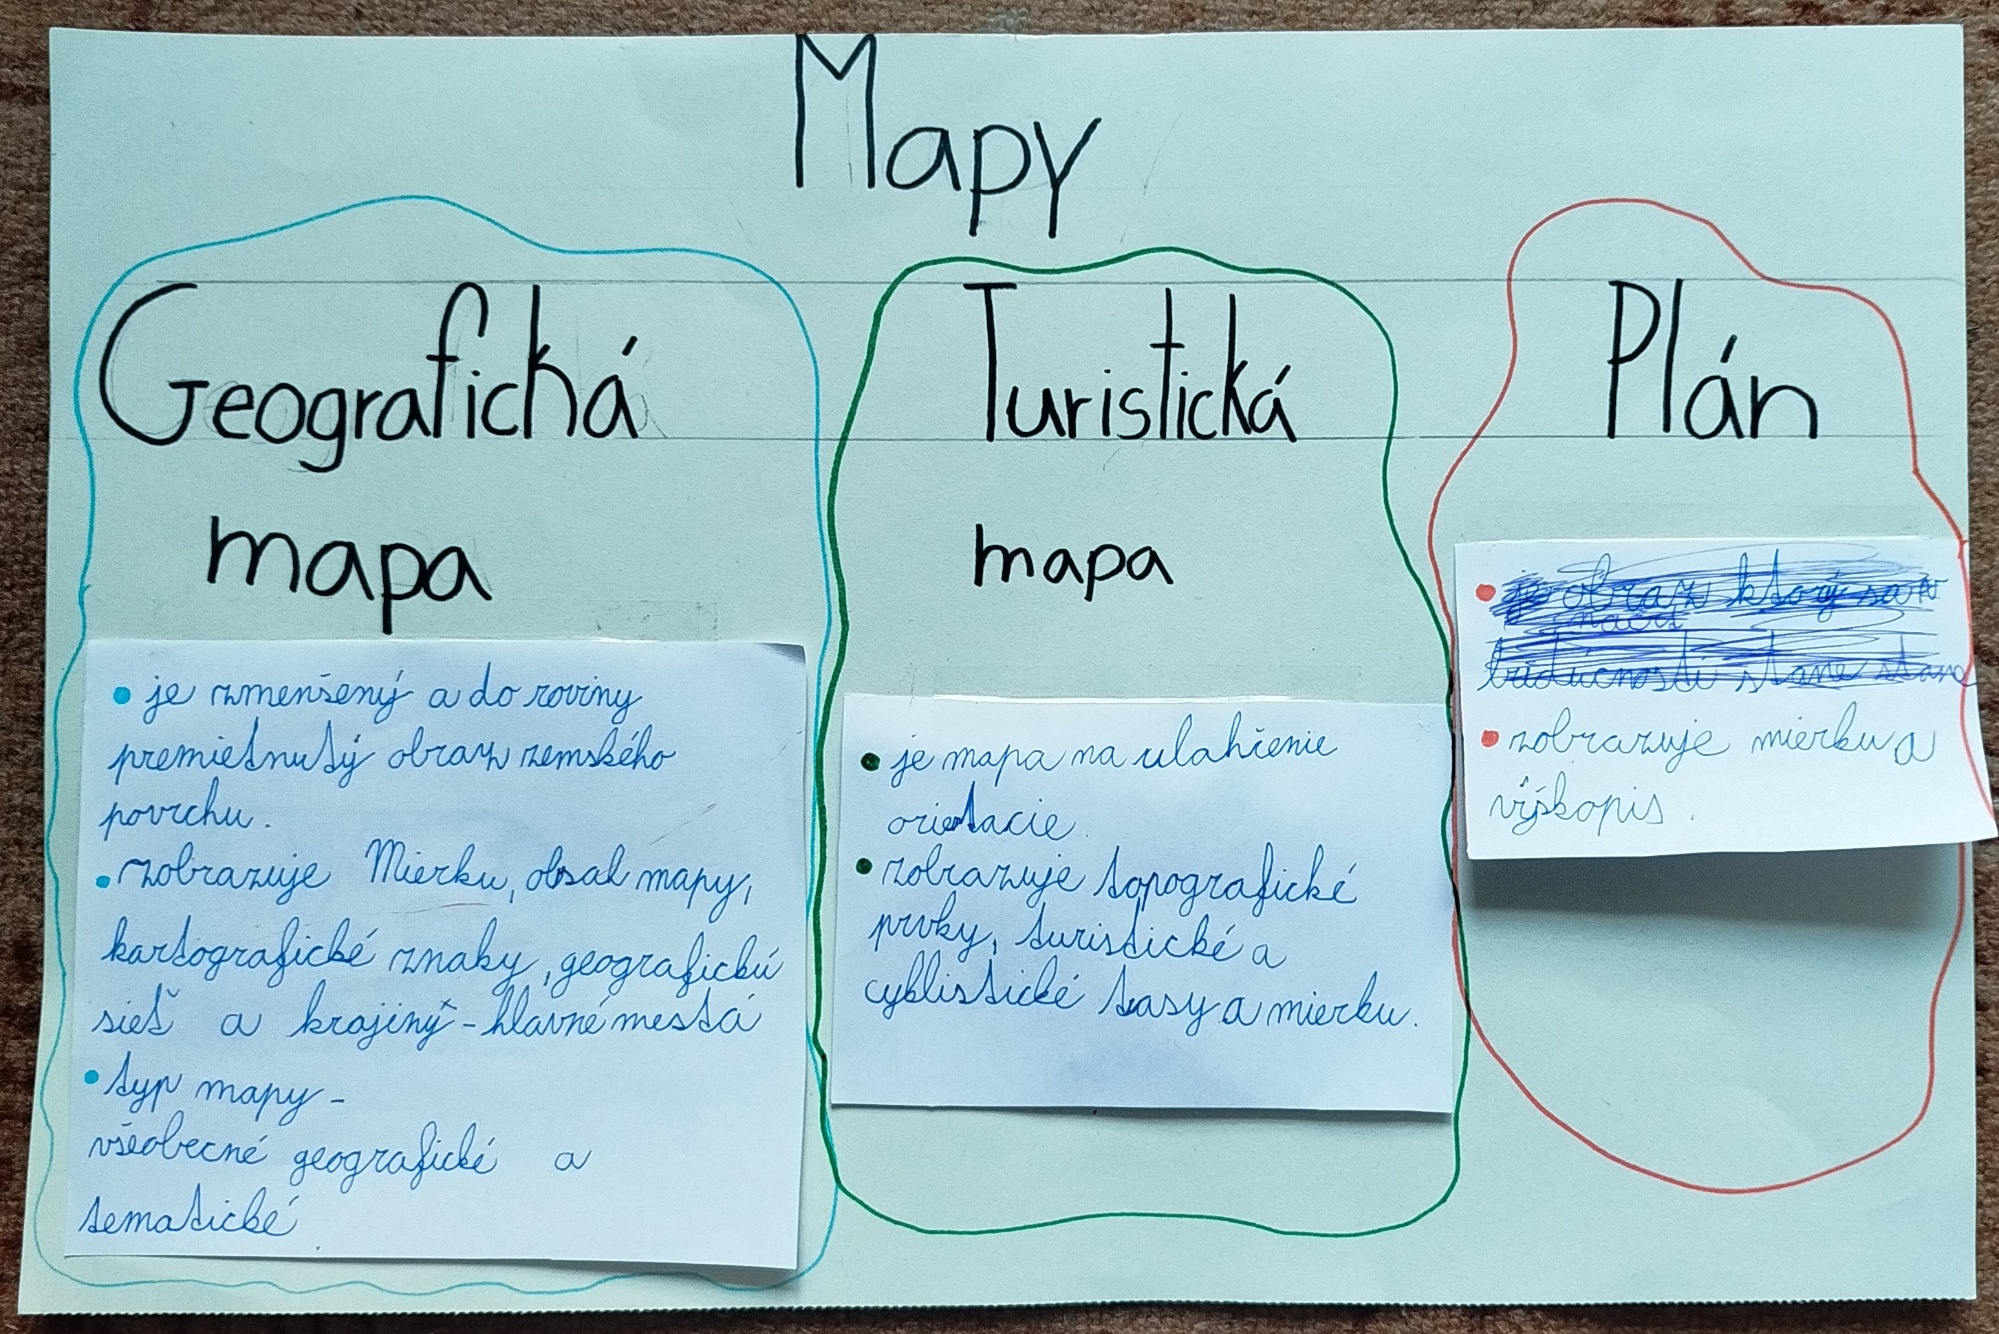 Mapy
Geografická
mapa
• je zmenšený a do roviny
premietnutý obraz zemského
povrchu.
• zobrazuje Mierku, obsah mapy,
kartografické znaky, geografickú
sieť a krajiný - hlavné mestá
• typ mapy -
všeobecné geografické a
tematické
Turistická
mapa
• je mapa na ulahčenie
orientacie.
• zobrazuje topografické
prvky, turistické a
cyklistické trasy a mierku.
Plán
• je obraz ktorý sa
stane stane
• zobrazuje mierku a
výškopis.